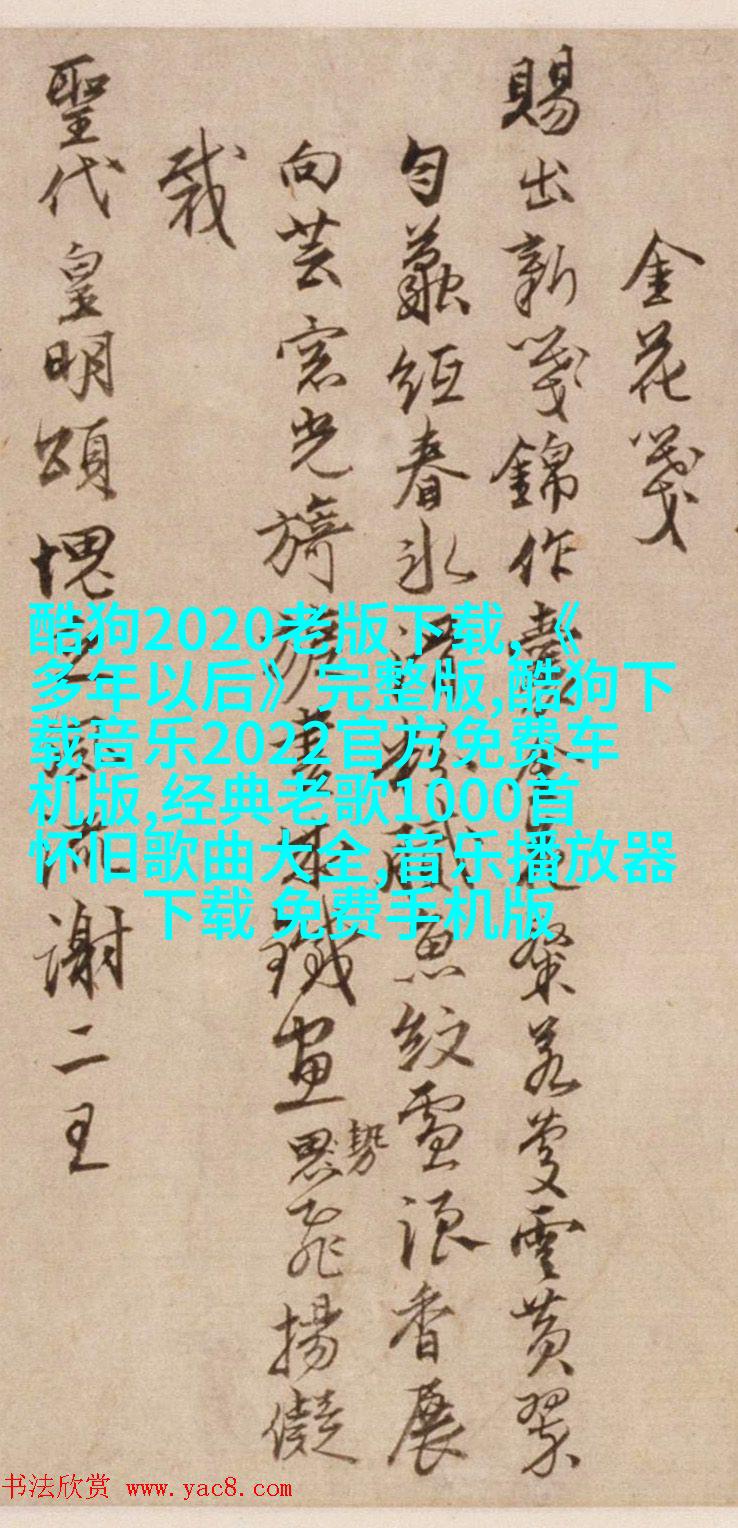 金花箋
賜出新箋錦作囊
粲若蔓雲黄翠
勻蘸經春水
魚紋雪浪香展
向芸窓光旖旎
畫
勢
思飛揚儗
裁
聖代皇明頌愧
謝二王
酷狗2020老版下载,《
多年以后》完整版,酷狗下
载音乐2022官方免费车
机版,经典老歌1000首
怀旧歌曲大全,音乐播放器
下载 免费手机版
书法欣赏 www.yac8.com